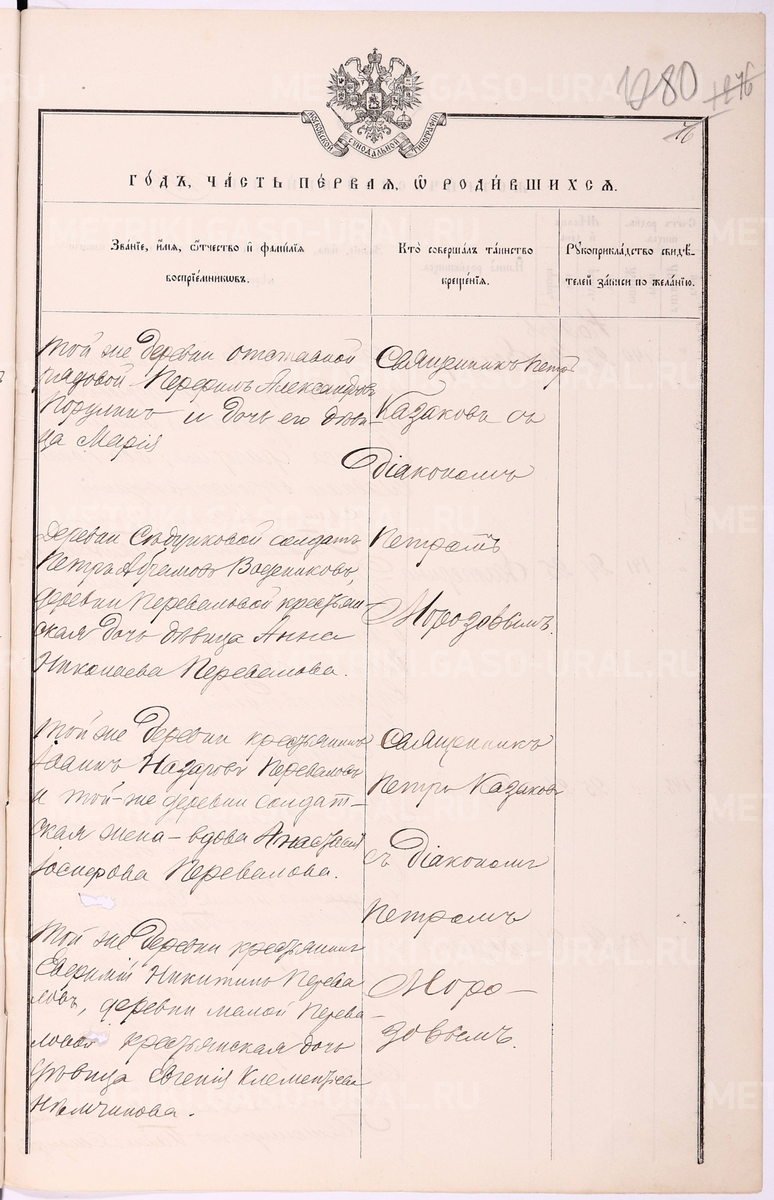 280
1276
76
МОСКОВСКОЙ СѴНОДАЛЬНОЙ ТИПОГРАФІИ
ГОДЪ, ЧАСТЬ ПЕРВАЯ, Ѿ РОДИВШИХСЯ.
Званіе, имя, отчество и фамилія
воспріемниковъ.
Кто совершалъ таинство
крещенія.
Рукоприкладство свидѣ-
телей записи по желанію.
Той же деревни отставной
рядовой Перфилъ Александровъ
и дочь его дѣви-
ца Марія
Священникъ Петръ
Казаковъ съ
Діакономъ
Петромъ
Морозовымъ.
Деревни солдатъ
Петръ Абрамовъ Водениковъ,
деревни Переваловой крестьян-
ская дочь дѣвица Анна
Николаева Перевалова.
Той же деревни крестьянинъ
Іоаннъ Назаровъ Переваловъ
и той-же деревни солдат-
ская жена - вдова Анастасія
Іосифова Перевалова.
Священникъ
Петръ Казаковъ
съ Діакономъ
Петромъ
Моро-
зовымъ.
Той же деревни крестьянинъ
Евфимій Никитинъ Перева-
ловъ, деревни малой Перева-
ловой крестьянская дочь
дѣвица Евгенія Климентьева
Нѣмчинова.
METRIKI.GASO-URAL.RU